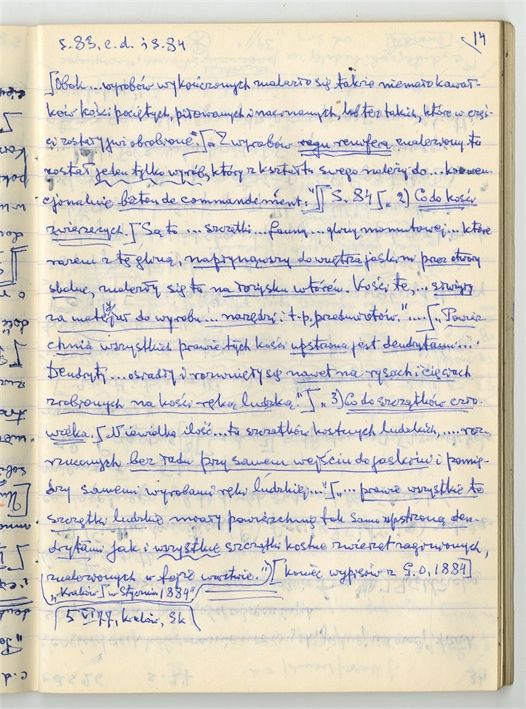 s. 83, c.d. i s. 84
14
[Obok... wyrobów wykończonych znalazło się także niemało kawał-
ków kości pociętych, piłowanych i nacinanych, lub też takich, które w częś-
ci zostały już obrobione."] „Z wyrobów rogu renifera znaleziony tu
został jeden tylko wyrób, który z kształtu swego należy do... konwen-
cjonalnie baton de commandement."] [S. 84] „2) Co do kości
zwierzęcych.] Są to... szczątki... fauny... głowy mamutowej... które
razem z tą gliną, napłynąwszy do wnętrza jaskini przez otwory
skalne, znalazły się tu na łożysku wtórem. Kości te, ... służyły
za materjał do wyrobu... narzędzi i t.p. przedmiotów."... [„Powierz-
chnia wszystkich prawie tych kości upstrzona jest dendrytami...
Dendryty... osiadły i rozwinęły się nawet na rysach i cięciach
zrobionych na kości ręką ludzką."] „3) Co do szczątków czło-
wieka.] Niewielka ilość... to szczątków kostnych ludzkich, ... roz-
rzuconych bez ładu przy samem wejściu do jaskini i pomię-
dzy samemi wyrobami ręki ludzkiej..."[„... prawie wszystkie te
szczątki ludzkie miały powierzchnię tak samo upstrzoną den-
drytami jak i wszystkie szczątki kostne zwierząt zaginionych,
znalezionych w tejże warstwie.") [koniec wypisów z G.O. 1884]
„Kraków [w Styczniu 1884"
5 VI 77, Kraków, Sk